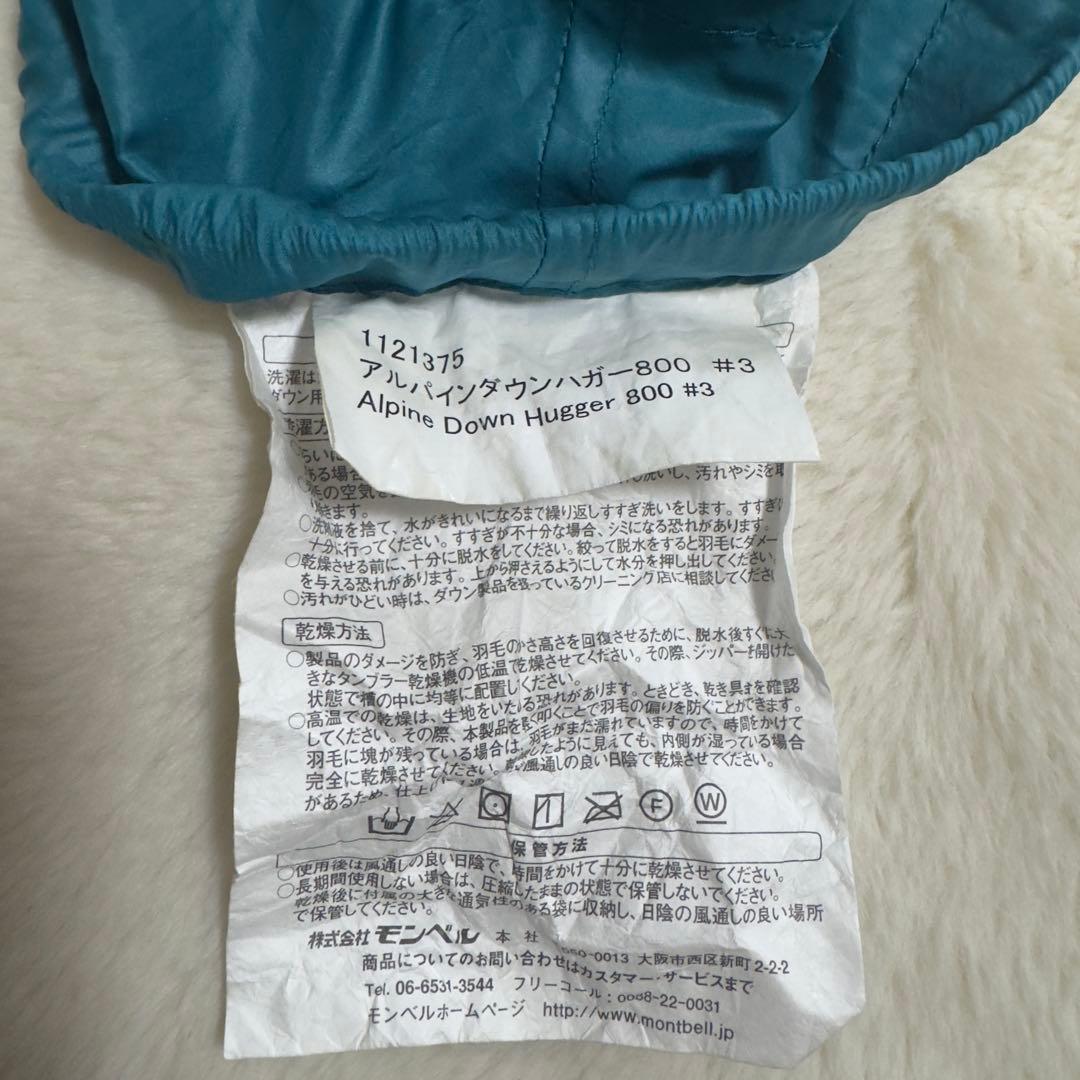 1121375
アルパインダウンハガー800 #3
Alpine Down Hugger 800 #3
洗濯は
ダウン用
洗いし、汚れやシミを取
ある場合
毛の空気を
きます。
○洗剤液を捨て、水がきれいになるまで繰り返しすすぎ洗いをします。すすぎは
十分に行ってください。すすぎが不十分な場合、シミになる恐れがあります。
○乾燥させる前に、十分に脱水をしてください。絞って脱水をすると羽毛にダメー
を与える恐れがあります。上から押さえるようにして水分を押し出してください。
○汚れがひどい時は、ダウン製品を扱っているクリーニング店に相談してくださ
乾燥方法
○製品のダメージを防ぎ、羽毛のかさ高さを回復させるために、脱水後すぐに大
きなタンブラー乾燥機の低温で乾燥させてください。その際、ジッパーを開けた
状態で槽の中に均等に配置してください。
○高温での乾燥は、生地をいためる恐れがあります。ときどき、乾き具合を確認
してください。その際、本製品を軽く叩くことで羽毛の偏りを防ぐことができます。
羽毛に塊が残っている場合は、羽毛がまだ濡れていますので、時間をかけて
完全に乾燥させてください。乾燥したように見えても、内側が湿っている場合
があるため、仕上げに風通しの良い日陰で乾燥させてください。
F W
保管方法
○使用後は風通しの良い日陰で、時間をかけて十分に乾燥させてください。
○長期間使用しない場合は、圧縮したままの状態で保管しないでください。
乾燥後に付属の大きな通気性のある袋に収納し、日陰の風通しの良い場所
で保管してください。
株式会社 モンベル 本社
550-0013 大阪市西区新町2-2-2
商品についてのお問い合わせはカスタマー・サービスまで
Tel. 06-6531-3544 フリーコール:0088-22-0031
モンベルホームページ http://www.montbell.jp